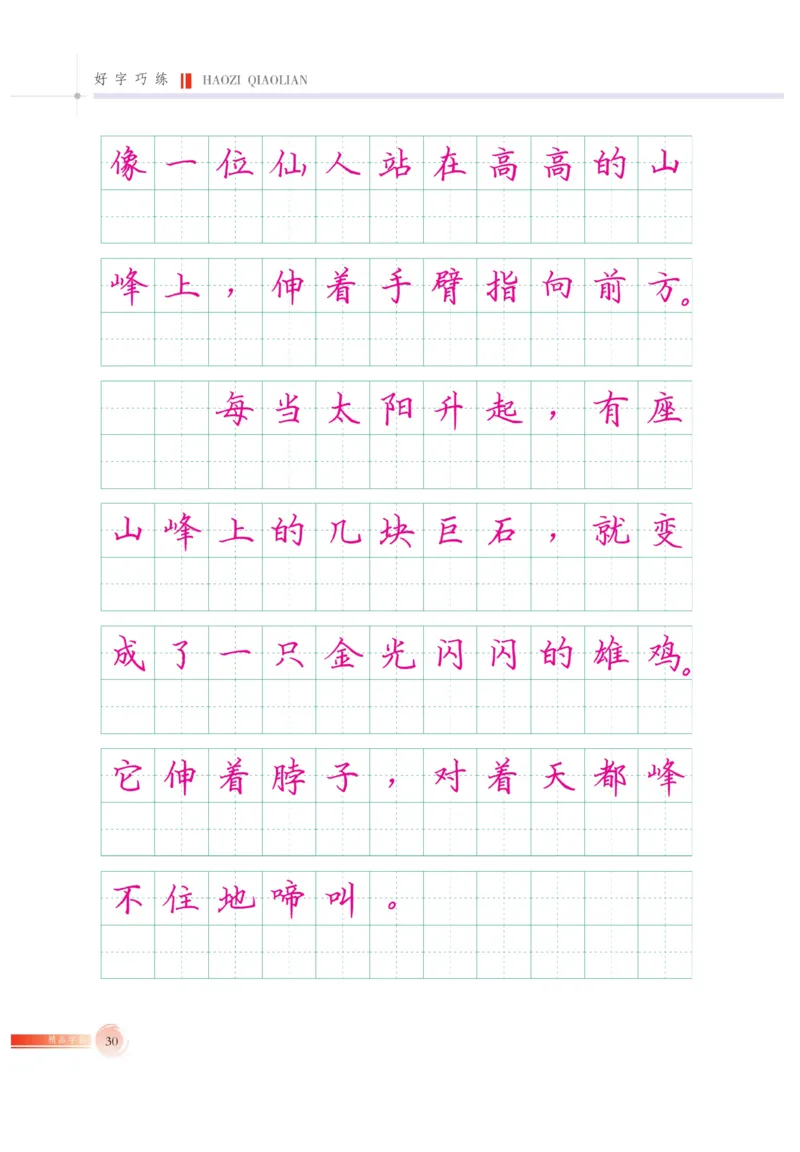 好字巧练 HAOZI QIAOLIAN
像一位仙人站在高高的山
峰上，伸着手臂指向前方。
每当太阳升起，有座
山峰上的几块巨石，就变
成了一只金光闪闪的雄鸡。
它伸着脖子，对着天都峰
不住地啼叫。
30